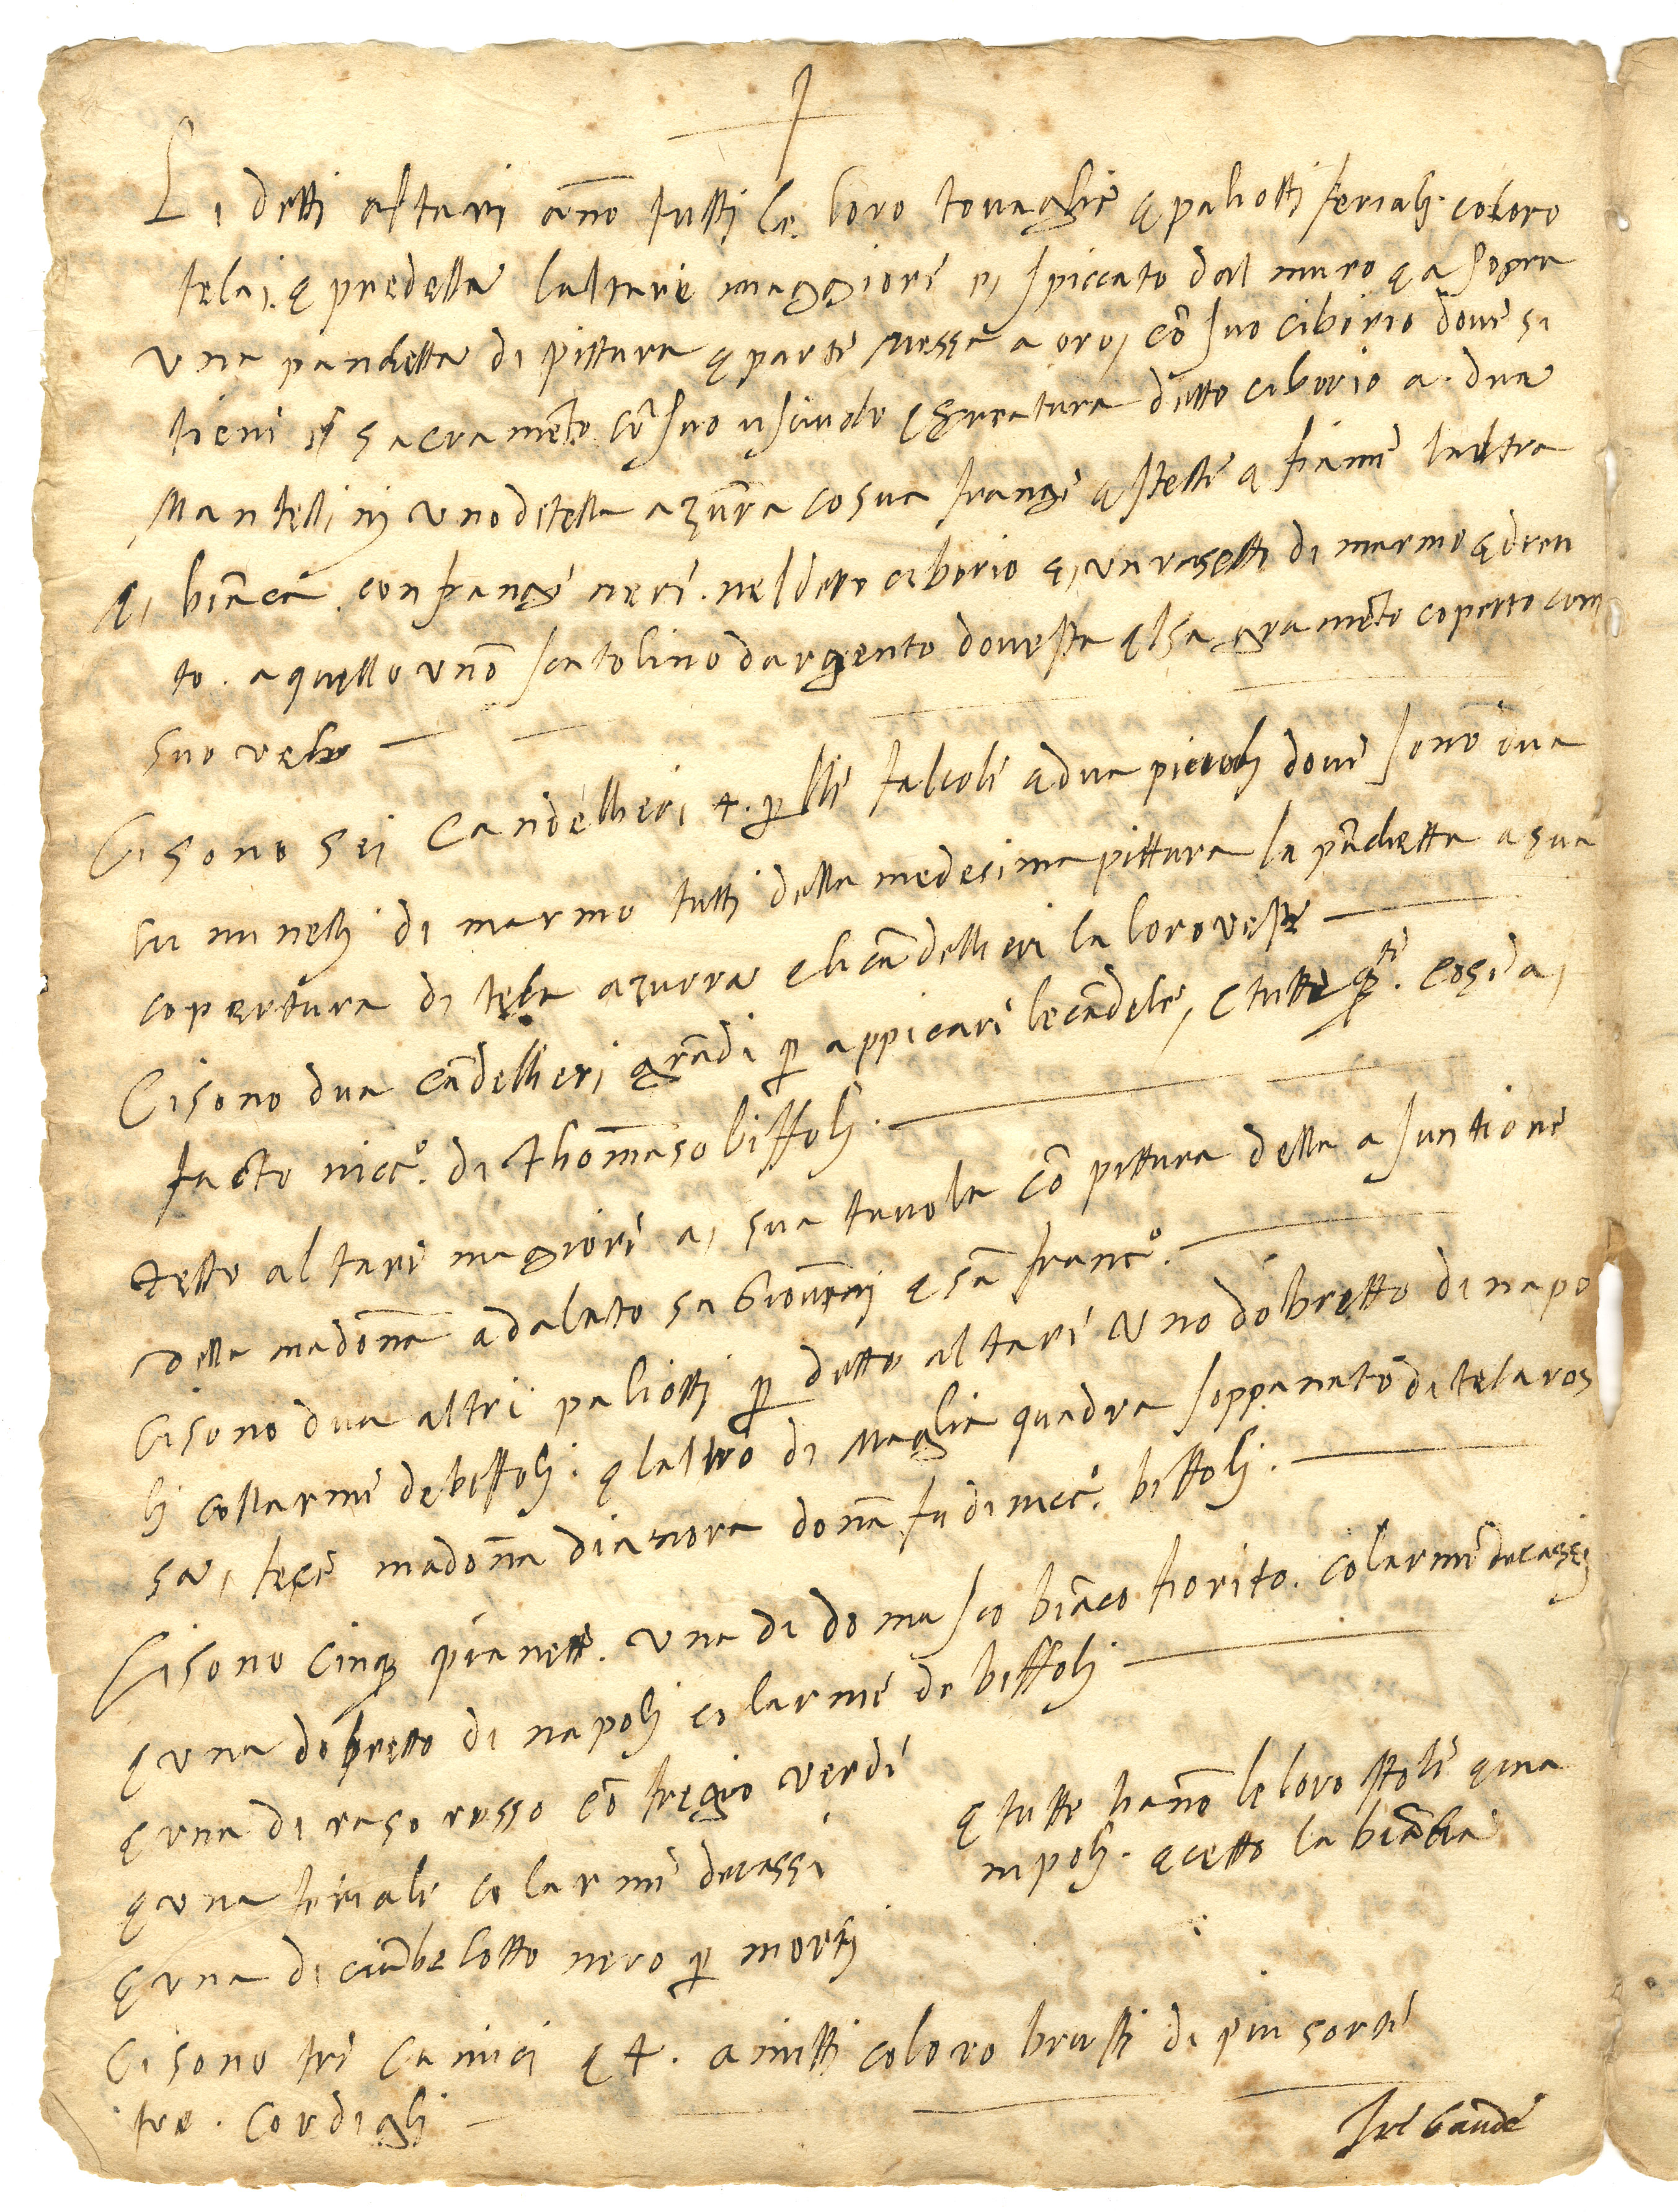 Li detti altari ano tutti le loro tovaglie e paliotti feriali coloro
telai e predella laltare maggiore e spiccato dal muro e a sopra
una panchetta di pittura e parte messa a oro, cō suo ciborio dove si
tiene il sacramēto cō suo usciuolo e serratura detto ciborio a dua
Mantellini uno di tella azurra co sua frange e stelle e fiame laltra
e, biāca con frange nere. nel detto ciborio e, un vasetti di marmo e dren
to a quello uno scatolino dargento dove sta el sagramēto coperto com
suo velo
Ci sono sei candellieri 4. p lle falcole e dua piccoli dove sono dua
luminelli di marmo tutti della medecima pittura la pāchetta a sua
copertura di tela azurra e li cādellieri la loro veste
Ci sono dua cādellieri grādi p appicare le cādele, e tutte q.te cose a,
facto nicc.o di Thomaso biffoli
detto altare magiore a, sua tavola cō pittura della asuntione
della madona adalato sā Giovāni e sā franc.o
Ci sono dua altri paliotti p detto altare uno dobretto di napo
li collarme de biffoli. e laltro di Maglia quadra soppanato di tela ros
sa, fece madona dianora dona fu di nicc.o biffoli.
Ci sono cinq pianette. una di domasco biāco fiorito. colarme de cassi
e una dobretto di napoli co larme de biffoli
e una di raso rosso cō fregio verde
e tutte hano le loro stole e ma
e una feriale co larme de cassi
nipoli. ecetto la biācha
e una di ciābelotto nero p morti
Ci sono tre camici e 4. amitti coloro brusti di piu sorte
tre. cordigli
tre bande